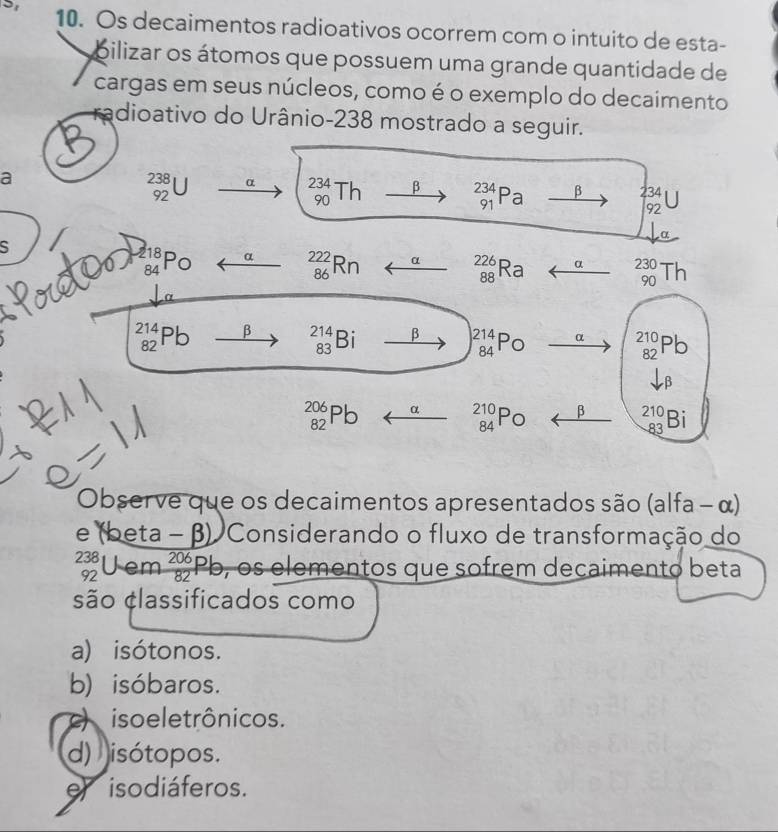 10. Os decaimentos radioativos ocorrem com o intuito de esta-
bilizar os átomos que possuem uma grande quantidade de
cargas em seus núcleos, como é o exemplo do decaimento
radioativo do Urânio-238 mostrado a seguir.
B
a
²³⁸₉₂U α→ ²³⁴₉₀Th β→ ²³⁴₉₁Pa β→ ²³⁴₉₂U
↓α
s
²¹⁸₈₄Po ←α ²²²₈₆Rn ←α ²²⁶₈₈Ra ←α ²³⁰₉₀Th
↓α
²¹⁴₈₂Pb β→ ²¹⁴₈₃Bi β→ ²¹⁴₈₄Po α→ ²¹⁰₈₂Pb
↓β
²⁰⁶₈₂Pb ←α ²¹⁰₈₄Po ←β ²¹⁰₈₃Bi
e = 11
Observe que os decaimentos apresentados são (alfa – α)
e (beta – β). Considerando o fluxo de transformação do
²³⁸₉₂U em ²⁰⁶₈₂Pb, os elementos que sofrem decaimento beta
são classificados como
a) isótonos.
b) isóbaros.
c) isoeletrônicos.
d) isótopos.
e) isodiáferos.